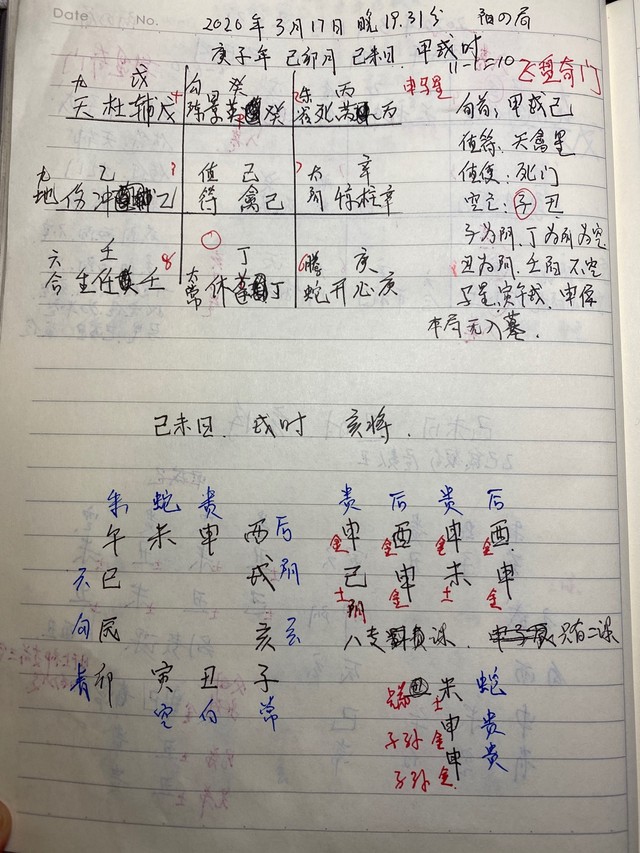 Date No.
2020年3月17日 晚19.31分 阳の局
庚子年 己卯月 己未日 甲戌时
11-1=10 飞盘奇门
九 戊 勾 癸 朱 丙 申马星
天柱辅戊 陈景英癸 雀死芮丙
旬首:甲戌己
值符:天禽星
九 乙 值 己 太 辛
地伤冲乙 符 禽己 阴惊柱辛
值使:死门
空亡:子丑
子为阴、丁为阳为空
丑为阴、壬阳 不空
六 壬 8 丁 6 螣 庚
合生任壬 太常休蓬丁 蛇开心庚
马星:寅午戌、申位
本局无入墓.
己未日. 戌时 亥将.
朱 蛇 贵 贵 后 贵 后
午 未 申 酉后 申 酉 申 酉
金 金 金 金
六 巳 戌阴 己 申 未 申
土 金 土 金
阴
勾 辰 亥玄 八专课. 只有二课
青 卯 寅 丑 子
空 白 常
未 蛇
土
子孙 申 贵
金
子孙 申 贵
金